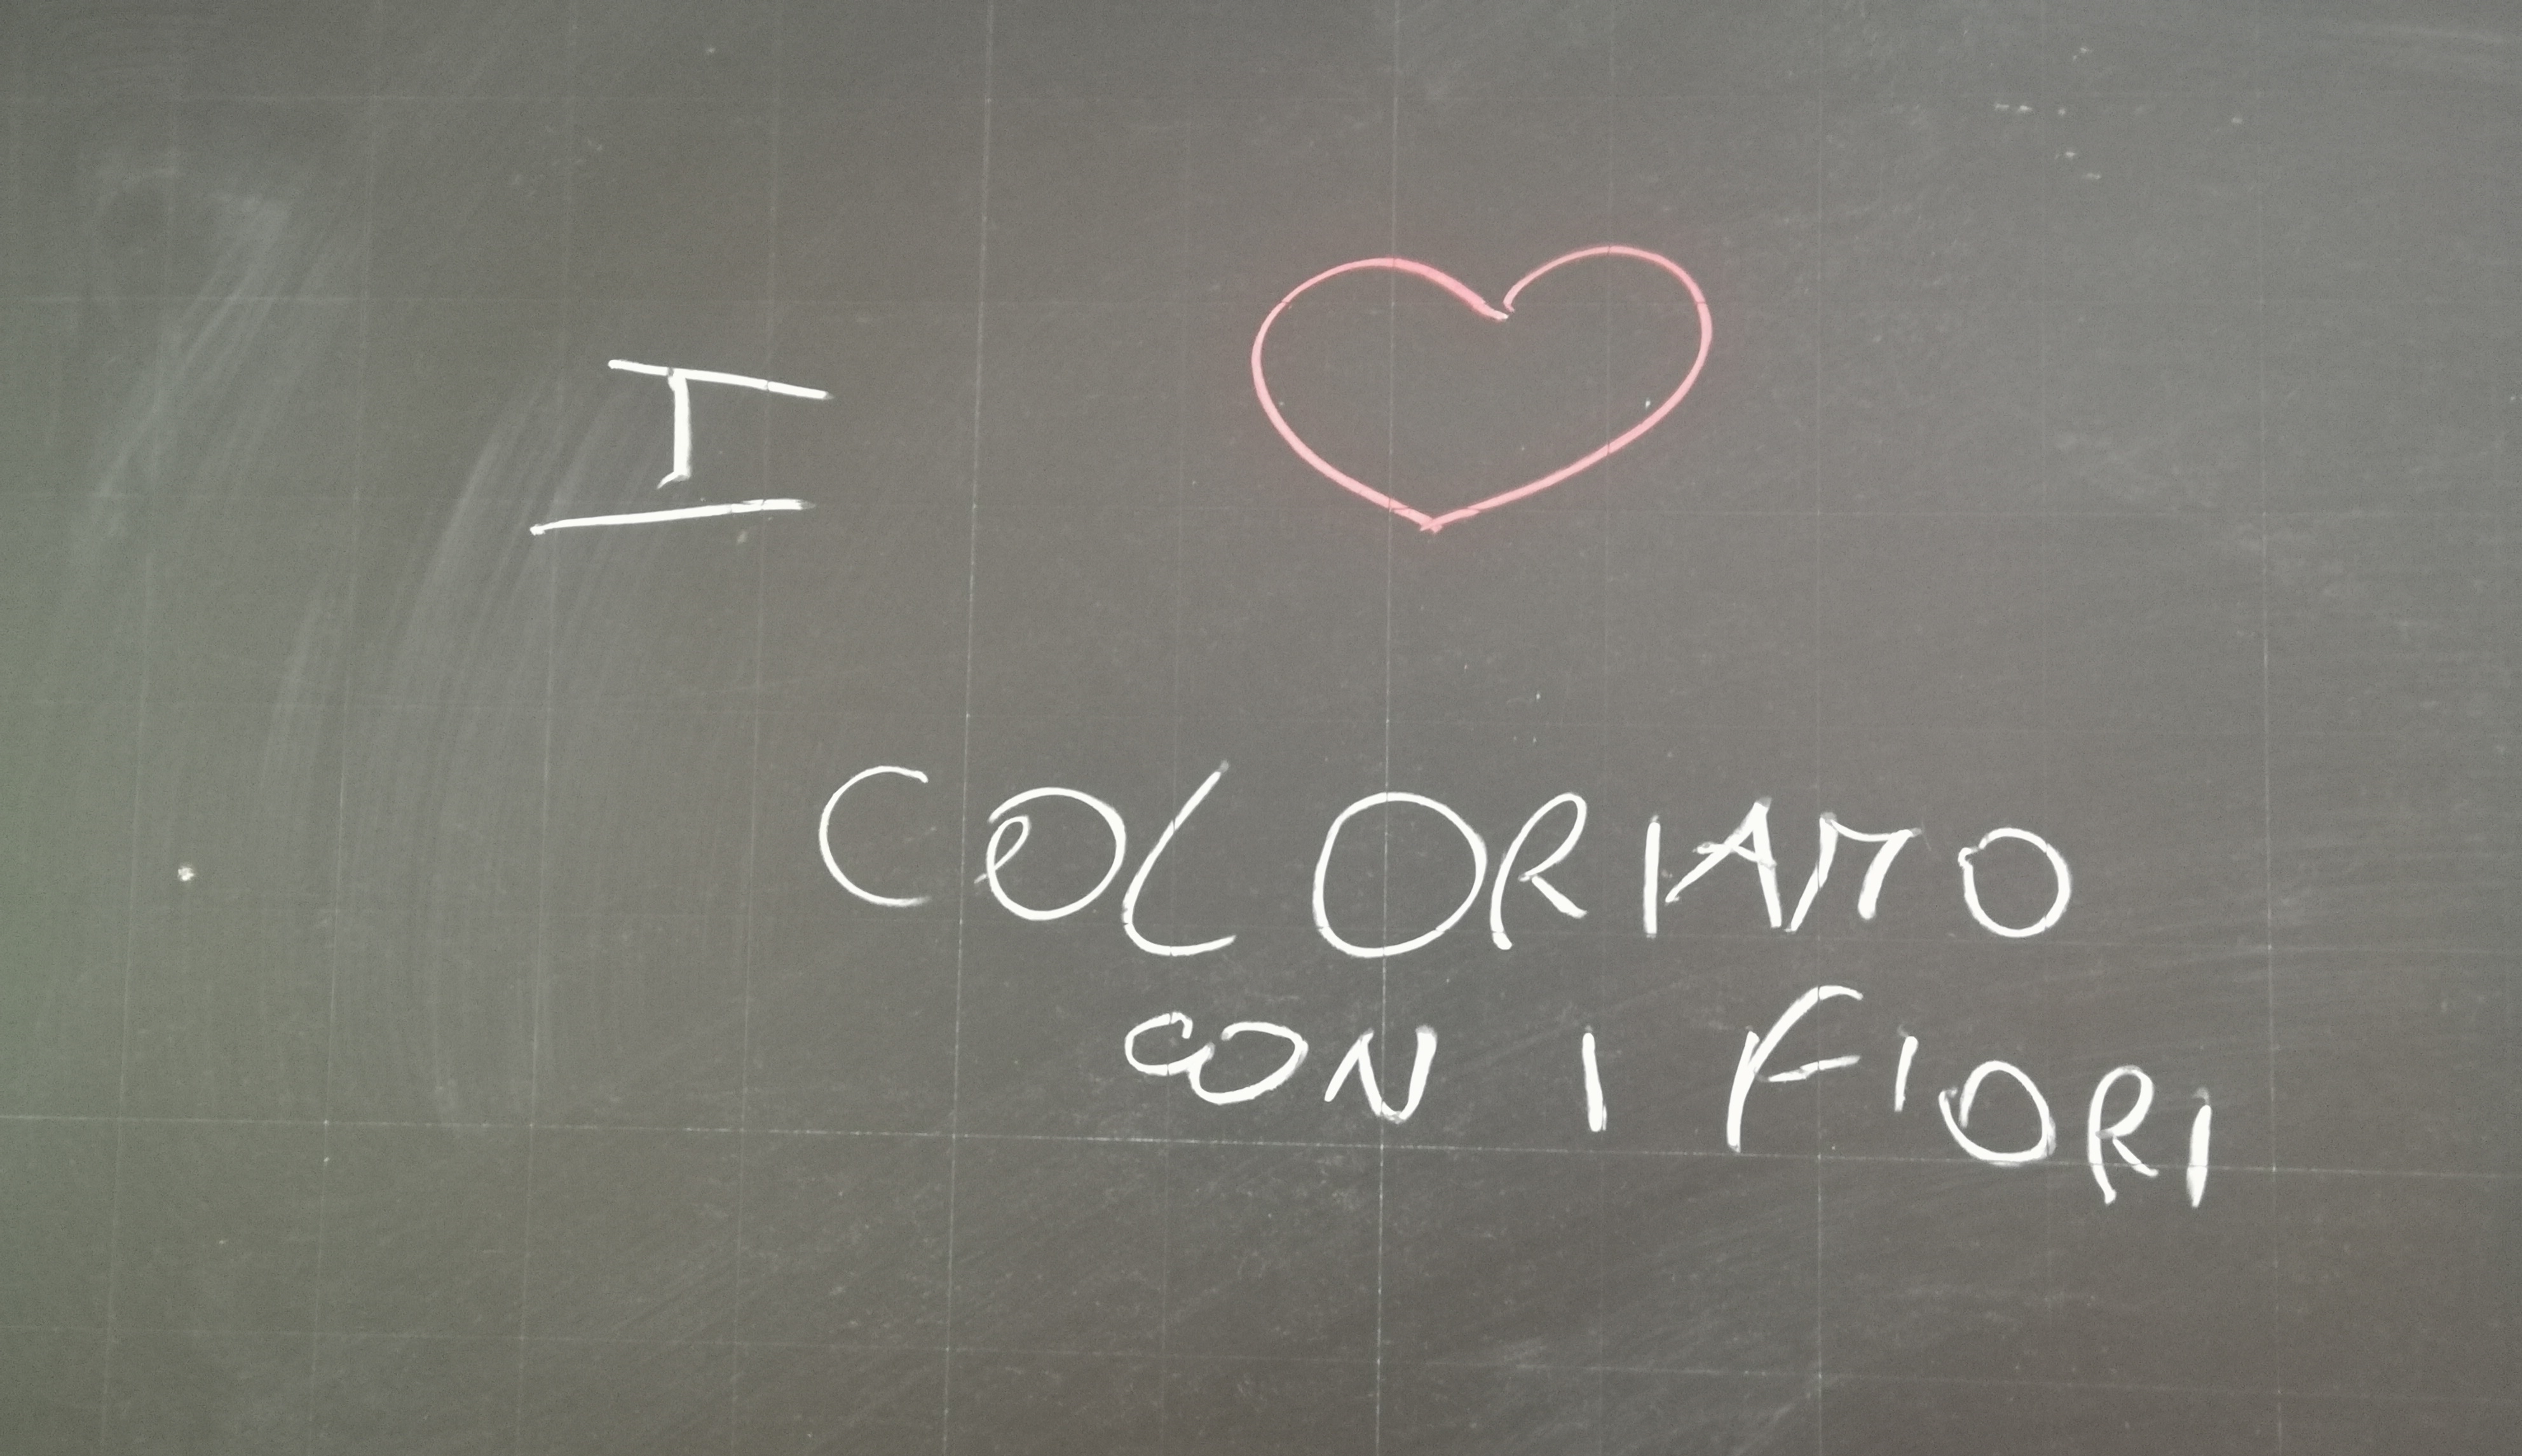 I
COLORIAMO
CON I FIORI